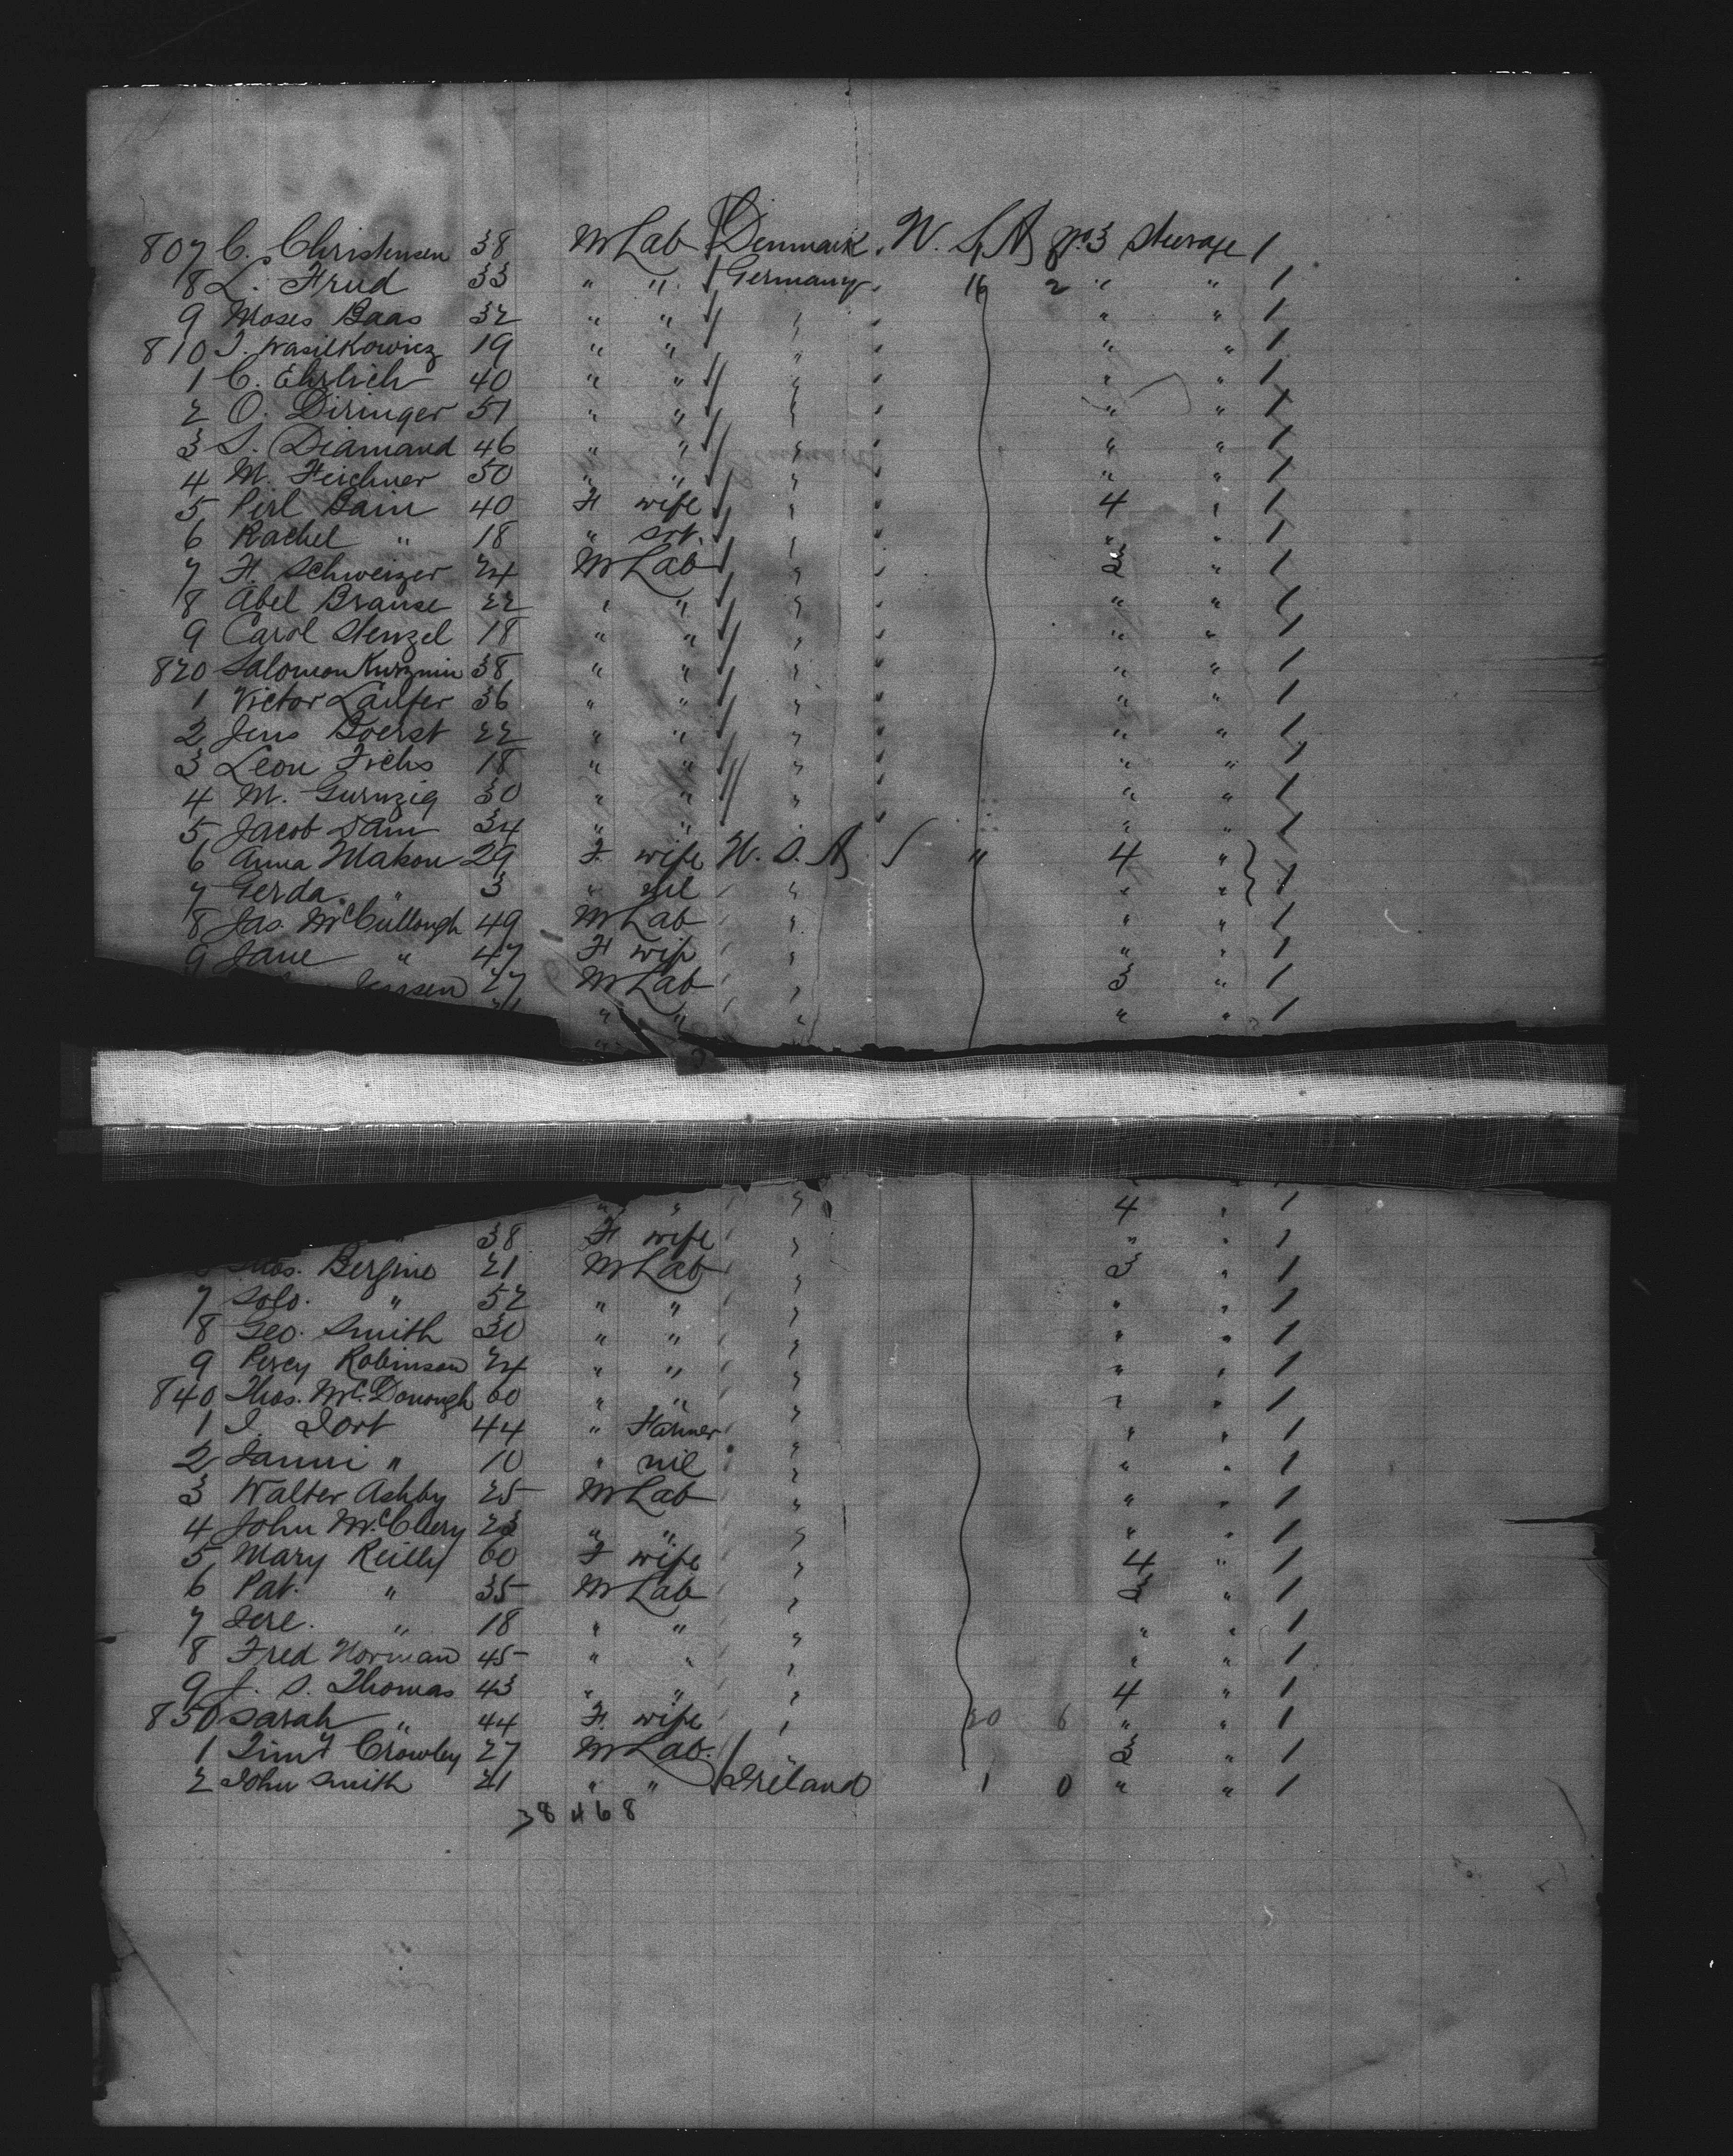 807 C. Christensen 38 M Lab Denmark U.S.A. No 3 Steerage 1
8 L. Frud 33 " " Germany 16 2 " " 1
9 Moses Baas 32 " " " " " 1
810 I. Wasilkowicz 19 " " " " " 1
1 C. Ehrlich 40 " " " " " 1
2 O. Diringer 51 " " " " " 1
3 S. Diamand 46 " " " " " 1
4 M. Feichner 50 " " " " " 1
5 Perl Bain 40 F wife " 4 " 1
6 Rachel " 18 " srt. " " " 1
7 H. Schweizer 24 M Lab " 3 " 1
8 Abel Brause 22 " " " " " 1
9 Carol Stenzel 18 " " " " " 1
820 Salomon Kurzmin 38 " " " " " 1
1 Victor Laufer 36 " " " " " 1
2 Jens Boerst 22 " " " " " 1
3 Leon Fichs 18 " " " " " 1
4 M. Gurnzig 30 " " " " " 1
5 Jacob Sam 34 " " " " 1
6 Anna Makon 29 F. wife U.S.A. " 4 " 1
7 Gerda " 3 " nil " " " 1
8 Jas. McCullough 49 M Lab " " " 1
9 Jane " 47 F wife " " " 1
Jenssen 27 M Lab " 3 " 1
" " " " " 1
" " " 4 " 1
" 38 F wife " " " 1
Bergins 21 M Lab " 3 " 1
7 Solo. " 52 " " " " " 1
8 Geo. Smith 30 " " " " " 1
9 Percy Robinson 24 " " " " " 1
840 Thos. McDonough 60 " " " " " 1
1 I. Iort 44 " Farmer " " " 1
2 Janni " 10 " nil " " " 1
3 Walter Ashby 25 M Lab " " " 1
4 John McCleery 23 " " " " " 1
5 Mary Reilly 60 F wife " 4 " 1
6 Pat. " 35 M Lab " 3 " 1
7 Jere. " 18 " " " " " 1
8 Fred Norman 45 " " " " " 1
9 J. S. Thomas 43 " " " 4 " 1
850 Sarah " 44 F. wife " 20 6 " " 1
1 Timy Crowley 27 M Lab. " 3 " 1
2 John Smith 21 " " Ireland 1 0 " " 1
38 468